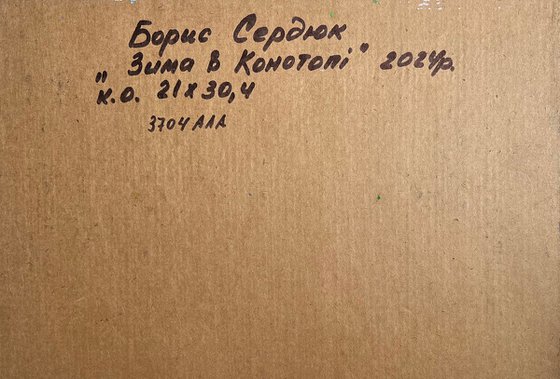 Борис Сердюк
„Зима в Конотопі" 2024р.
к.о. 21х30,4
3704АЛА